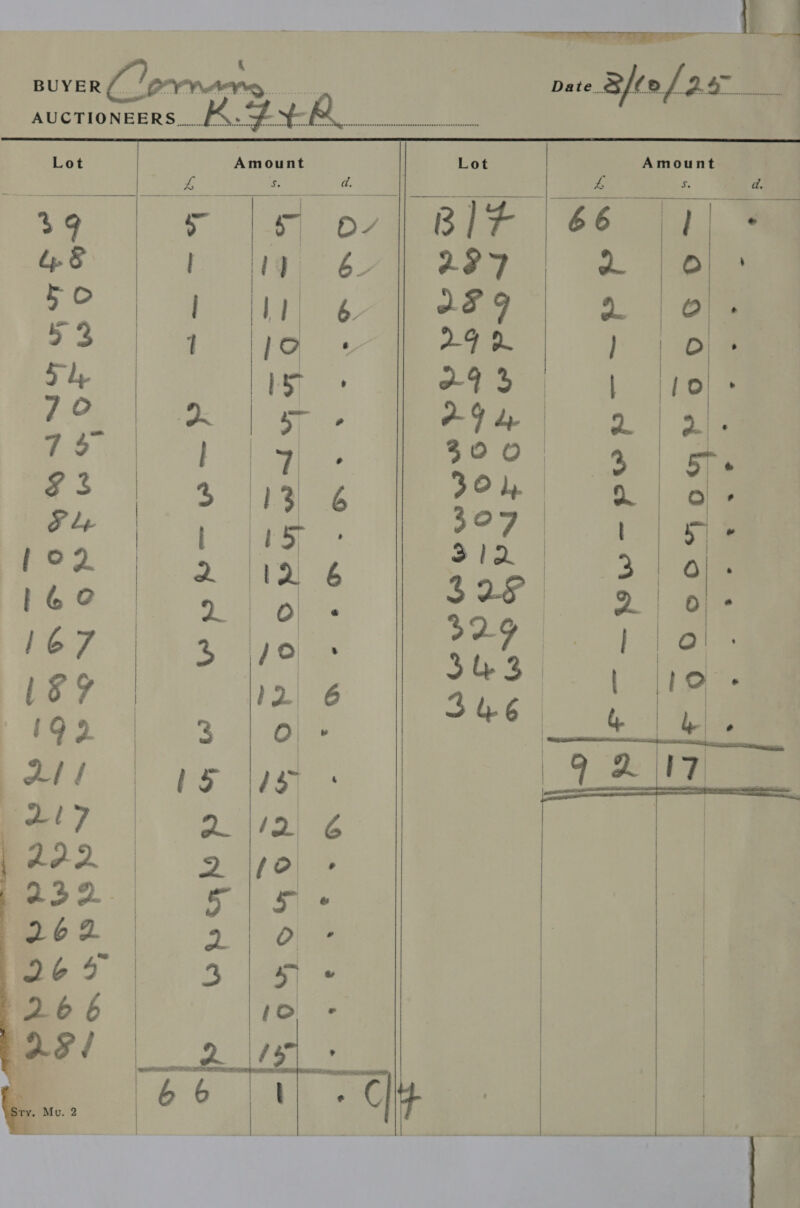 BUYER
Date 3/10/25
AUCTIONEERS K.F+R
Lot Amount Lot Amount
£ s. d. £ s. d.
39 5 5 0 B/F 66 1 .
48 1 11 6 287 2 0 .
50 1 11 6 289 2 0 .
53 1 10 . 292 1 0 .
54 15 . 293 1 10 .
70 2 5 . 294 2 2 .
75 1 7 . 300 3 5 .
83 3 13 6 304 2 0 .
84 1 15 . 307 1 5 .
102 2 12 6 312 3 0 .
160 2 0 . 328 2 0 .
167 3 10 . 329 1 0 .
189 12 6 343 1 10 .
192 3 0 . 346 4 4 .
211 15 15 . 92 17
217 2 12 6
222 2 10 .
232 5 5 .
262 2 0 .
265 3 5 .
266 10 .
281 2 15 .
66 1 . C/F
Sry. Mu. 2